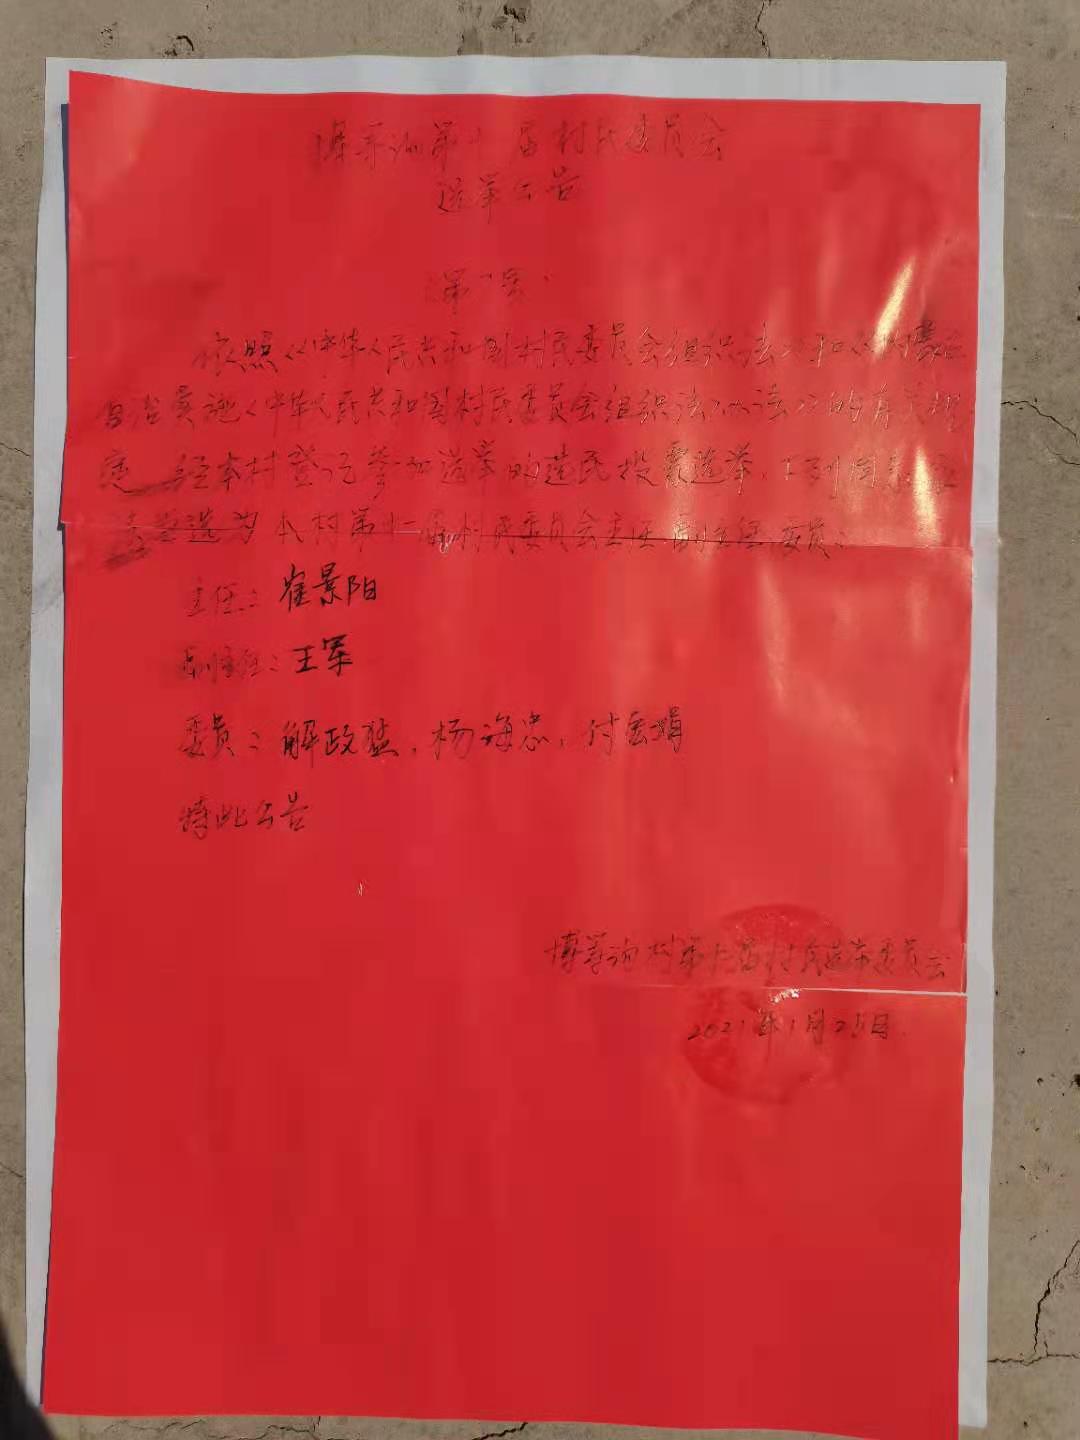 第十届村民委员会
选举公告
依照《中华人民共和国村民委员会组织法》和《内蒙古
自治实施《中华人民共和国村民委员会组织法》办法》的有关规
定 经本村登记参加选举的选民投票选举,下列同志
当选为本村第十一届村民委员会主任副主任委员:
主任:崔景阳
副主任:王军
委员:解政猛,杨海忠,付
特此公告
村第十一届村民选举委员会
2021年1月25日